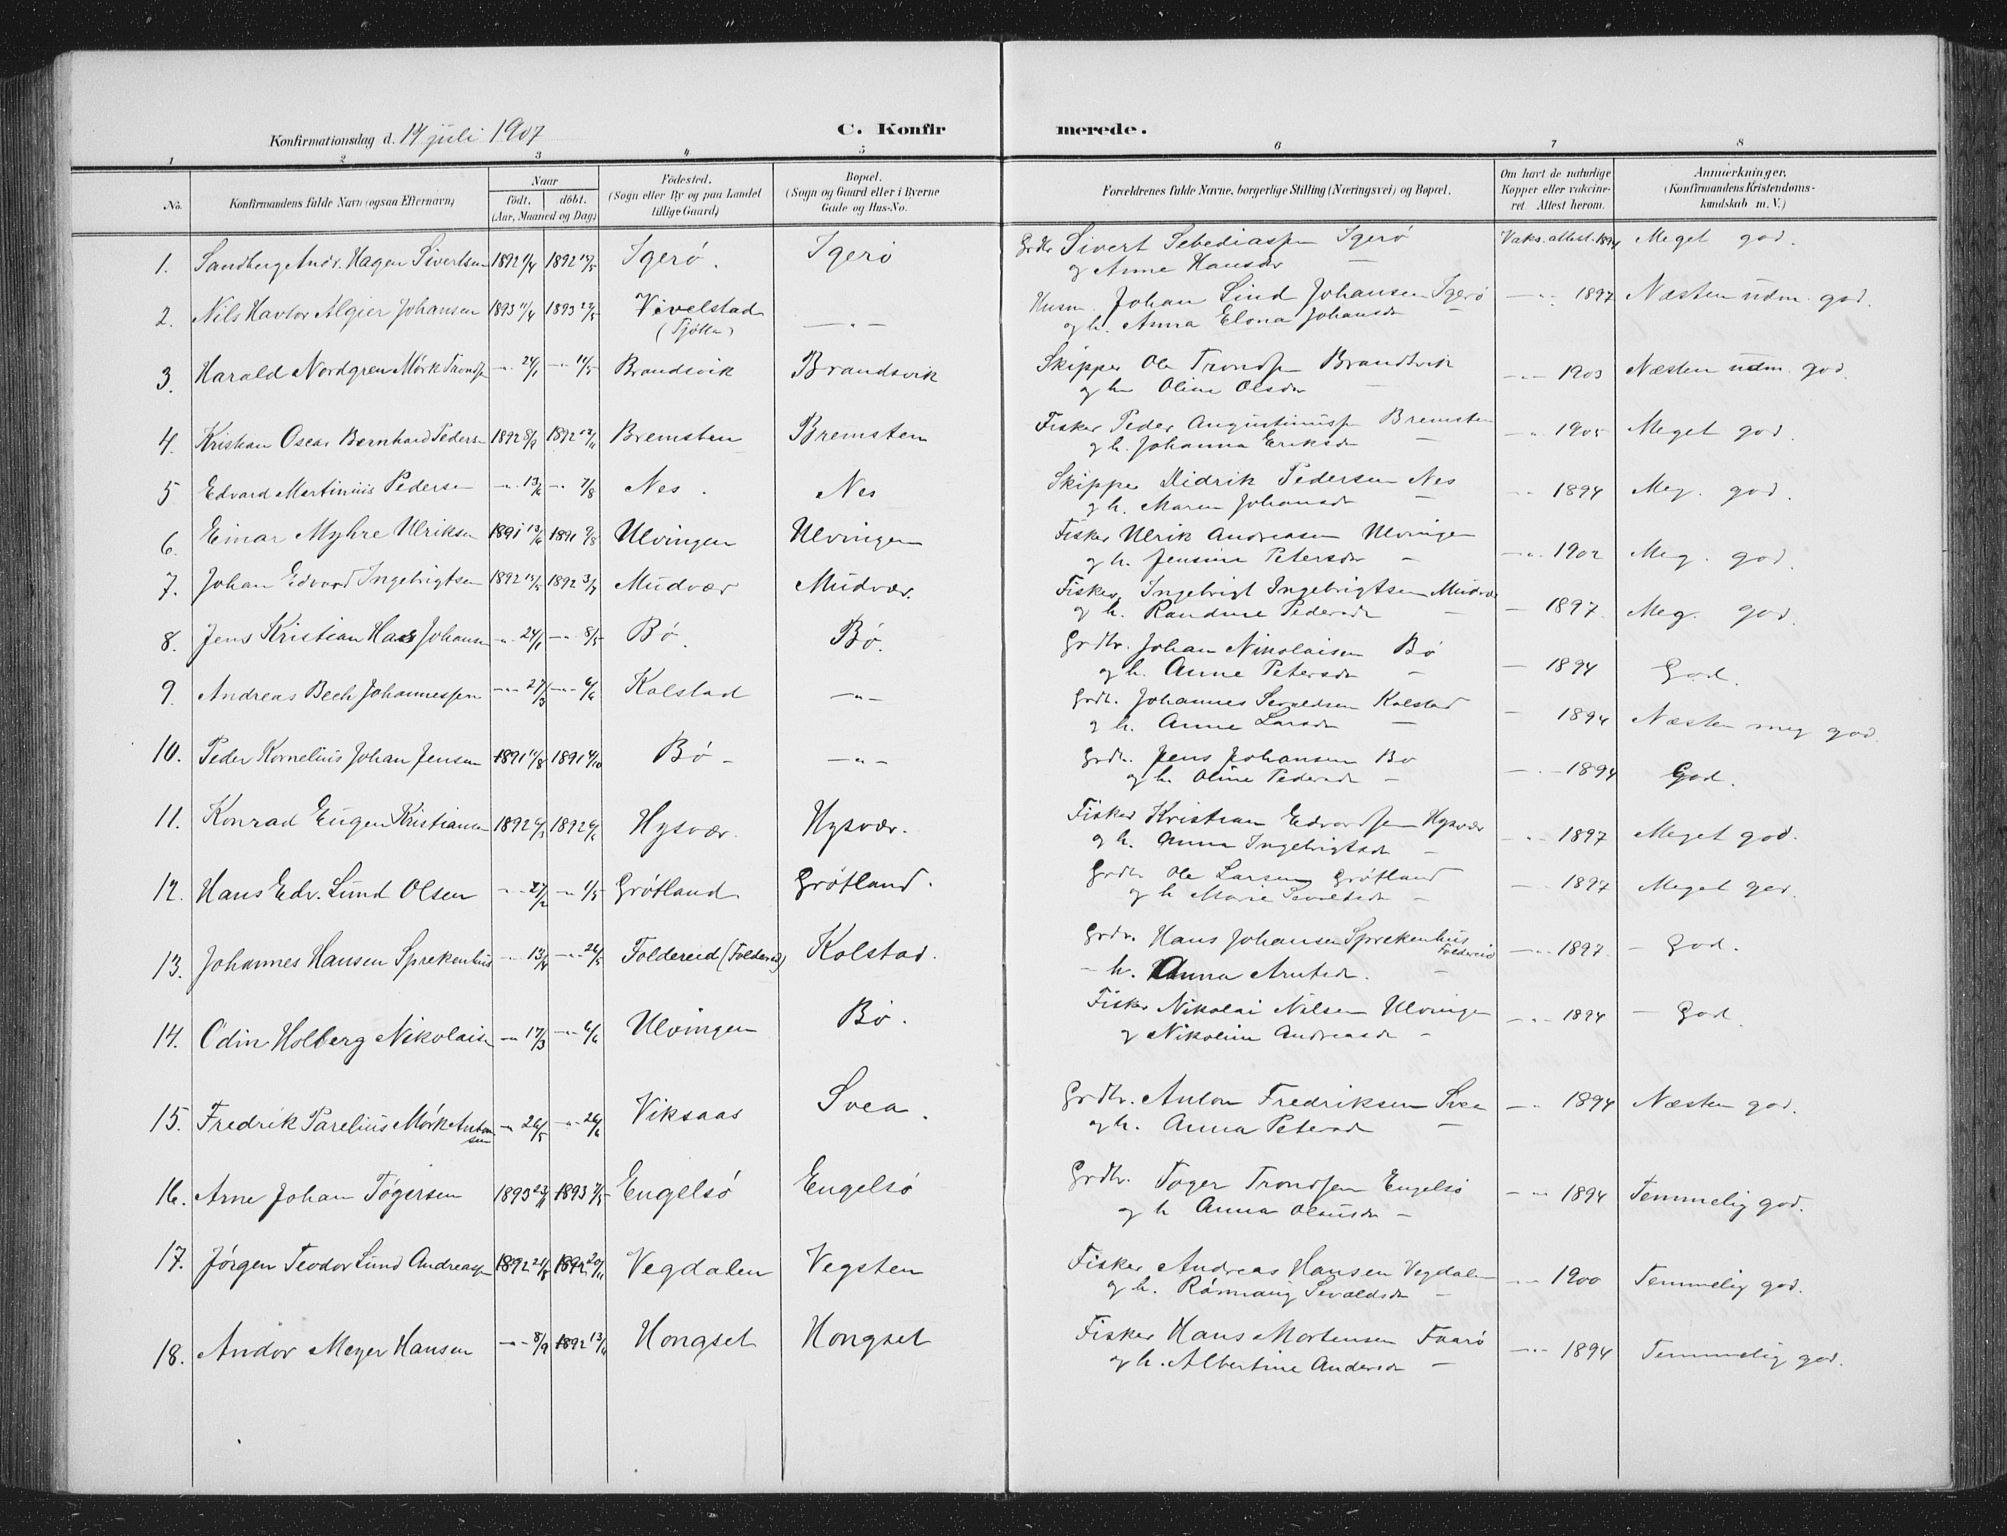 Konfirmationsdag d. 14 juli 1907
C. Konfirmerede.
1 2 3 4 5 6 7 8
No. Konfirmandens fulde Navn (ogsaa Efternavn) Naar født. døbt. (Aar, Maaned og Dag) Fødested. (Sogn eller By og paa Landet tillige Gaard) Bopæl. (Sogn og Gaard eller i Byerne Gade og Hus-No. Forældrenes fulde Navne, borgerlige Stilling (Næringsvei) og Bopæl. Om havt de naturlige Kopper eller vaccineret Attest herom. Anmerkninger. (Konfirmandens Kristendomskundskab m. V.)
1. Sandberg Andr. Hagen Sivertsen 1892 1892 Igerø. Igerø Grdbr Sivert Sebediassen Igerø Vaks. attest. 1894 Meget god.
og Anne Hansdr —
2. Nils Havtor Algier Johansen 1893 11/4 1893 Vivelstad —"— Husm. Johan Lind Johansen Igerø —"— 1897 Næsten udm. god.
(Tjøtta) og h. Anna Elona Johansdr —
3. Harald Nordgren Mørk Trondsen —"— 24/1 —"— Brandsvik Brandsvik Skipper Ole Trondsen Brandsvik —"— 1903 Næsten udm. god.
og h. Oline Olsdr —
4. Kristian Oscar Bernhard Peders. 1892 8/9 1892 13/11 Bremsten Bremsten Fisker Peder Augustinussen Bremsten —"— 1905 Meget god.
og h. Johanna Eriksdr —
5 Edvard Martinius Pedersen —"— 13/6 —"— 7/8 Nes. Nes Skipper Didrik Pedersen Nes —"— 1894 Meg. god.
og h. Maren Johansdr —
6. Einar Myhre Ulriksen 1891 13/6 1891 9/8 Ulvingen Ulvingen Fisker Ulrik Andreasen Ulvingen —"— 1902 Meg. god.
og h. Jensine Petersdr —
7. Johan Edvard Ingebrigtsen 1892 1892 3/7 Mudvær Mudvær. Fisker Ingebrigt Ingebrigtsen Mudvær
og h. Randine Pedersdr — 1897. Meg. god.
8. Jens Kristian Johansen —"— 24/1 —"— 8/5 Bø. Bø. Grdbr. Johan Nikolaisen Bø — 1894 God.
og h. Anne Petersdr —
9. Andreas Bech Johannessen —"— 27/3 —"— 6/6 Kolstad —"— Grdb. Johannes Sevaldsen Kolstad — 1894 Næsten meg god
og h. Anne Larsdr —
10. Peder Kornelius Johan Jensen 1891 11/8 1891 4/10 Bø — —"— Grdb. Jens Johansen Bø —"— 1894 God.
og h. Oline Pedersdr —
11. Konrad Eugen Kristiansen 1892 1892 Hysvær. Hysvær. Fisker Kristian Edvardsen Hysvær —"— 1897 Meget god.
og h. Anna Ingebrigtsdr —
12. Hans Edv. Lund Olsen —"— 27/2 —"— 1/5 Grøtland. Grøtland. Grdb. Ole Larsen Grøtland —"— 1897 Meget god.
og h Marie —
13. Johannes Hansen Sprekenhus —"— 13/4 —"— 26/5 Foldereid (Foldereid) Kolstad. Grdbr. Hans Johansen Sprekenhus Foldereid —"— 1897 — God.
— h. Anna Arntsdr. —
14. Odin Holberg Nikolaisen —"— 17/3 —"— 6/6 Ulvingen Bø. Fisker Nikolai Nilsen Ulvingen —"— 1894 — God.
og Nikoline Andreasdr —
15. Fredrik Parelius Mørk Antonsen —"— 26/5 —"— 26/6 Viksaas Svea. Grdbr. Anton Fredriksen Svea —"— 1894 Næsten god.
og h. Anna Petersdr —
16. Arne Johan Tøgersen 1893 1893 7/5 Engelsø Engelsø Grdbr. Tøger Trondsen Engelsø —"— 1894 Temmelig god.
og h Anna Olausdr —
17. Jørgen Teodor Lund Andreassen 1892 21/8 1892 20/11 Vegdalen Vegsten Fisker Andreas Hansen Vegdalen —"— 1900 Temmelig god.
og h. Rønnaug Sevaldsdr —
18. Andor Meyer Hansen —"— 8/9 1892 13/11 Hongset Hongset Fisker Hans Mortensen Faarø —"— 1894 Temmelig god.
og h. Albertine Andersdr —